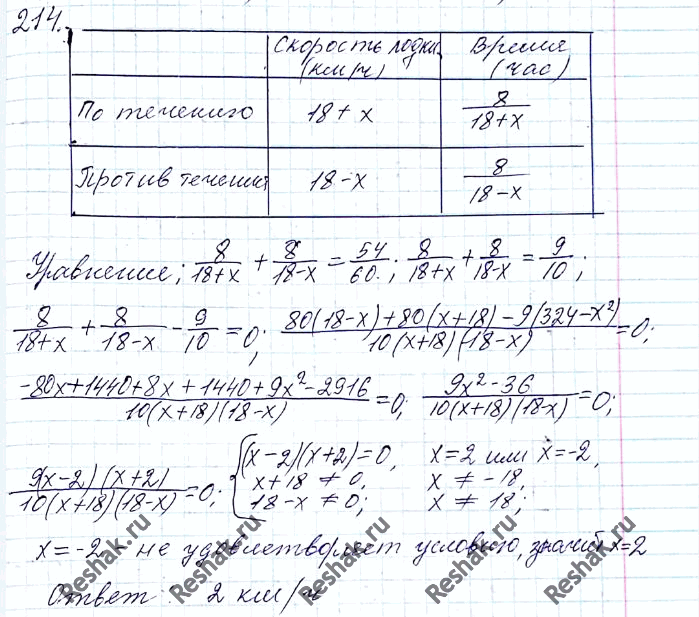 214.
Скорость лодки (км/ч) Время (час)
По течению 18+x 8/(18+x)
Против течения 18-x 8/(18-x)
Уравнение; 8/(18+x) + 8/(18-x) = 54/60; 8/(18+x) + 8/(18-x) = 9/10;
8/(18+x) + 8/(18-x) - 9/10 = 0; (80(18-x)+80(x+18)-9(324-x²))/(10(x+18)(18-x)) = 0;
(-80x+1440+8x+1440+9x²-2916)/(10(x+18)(18-x)) = 0; (9x²-36)/(10(x+18)(18-x)) = 0;
(9(x-2)(x+2))/(10(x+18)(18-x)) = 0; { (x-2)(x+2)=0, x=2 или x=-2,
x+18≠0, x≠-18,
18-x≠0; x≠18;
x=-2 - не удовлетворяет условию, значит x=2
Ответ: 2 км/ч
Reshak.ru Reshak.ru Reshak.ru Reshak.ru Reshak.ru